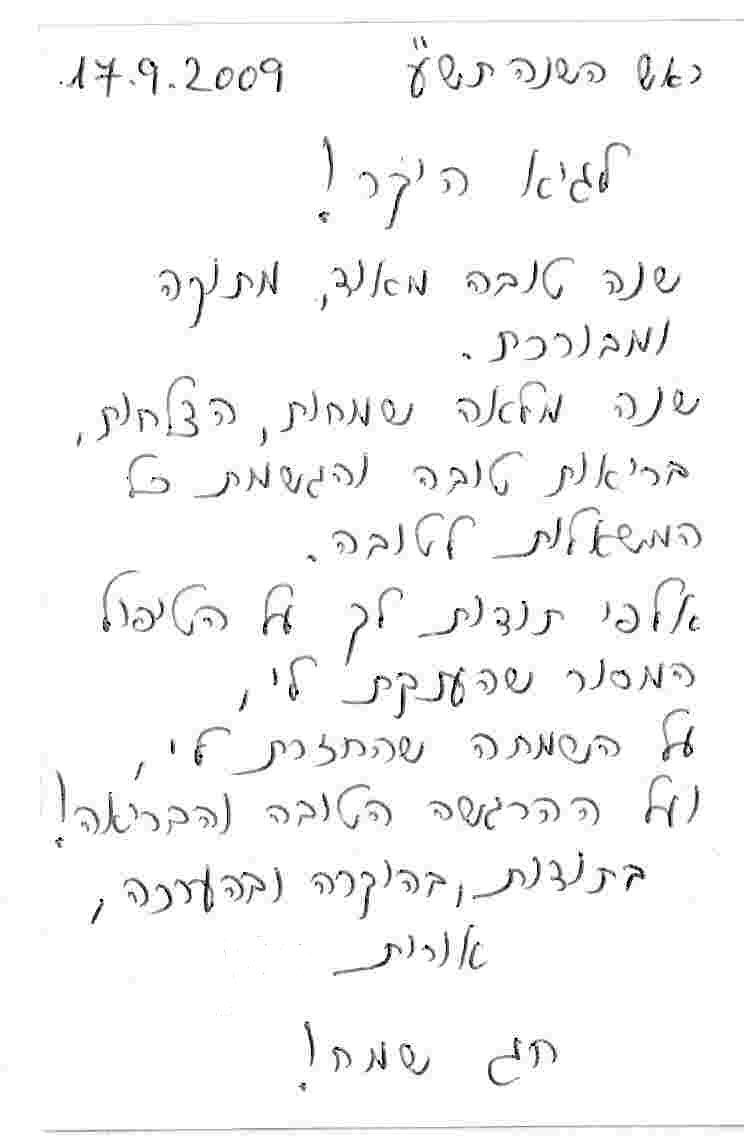 ראש השנה תש"ע 17.9.2009.
לגיא היקר!
שנה טובה מאוד, מתוקה
ומבורכת.
שנה מלאה שמחות, הצלחות,
בריאות טובה והגשמת כל
המשאלות לטובה.
אלפי תודות לך על הטיפול
המסור שהענקת לי,
על השמחה שהחזרת לי,
ועל ההרגשה הטובה והבריאה!
בתודות, בהוקרה ובהערכה,
אורית
חג שמח!